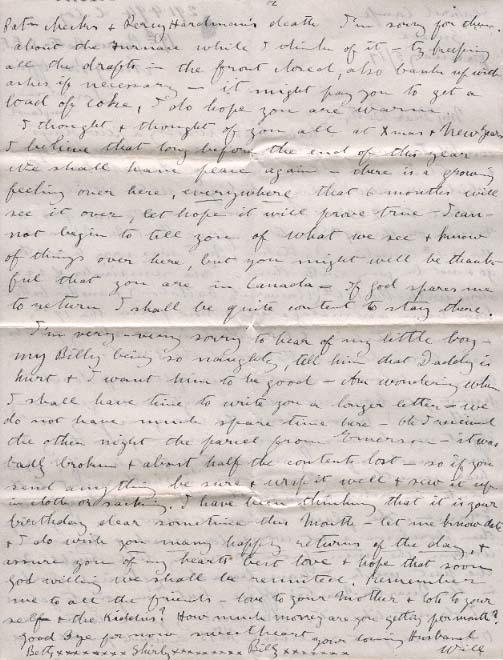 Pat Meeks & Percy Hardman's death I'm sorry for them.
about the furnace while I think of it - try keeping
all the drafts in the front closed, also bank up with
ashes if necessary - it might pay you to get a
load of coke, I do hope you are warm
I thought & thought of you all at Xmas & New Years
I believe that long before the end of this year
we shall have peace again - there is a growing
feeling over here, everywhere that 6 months will
see it over, let hope it will prove true - I can-
not begin to tell you of what we see & know
of things over here, but you might well be thank-
ful that you are in Canada - if god spares me
to return I shall be quite content to stay there.
I'm very - very sorry to hear of my little boy -
my Billy being so naughty, tell him that Daddy is
hurt & I want him to be good - Am wondering when
I shall have time to write you a longer letter - we
do not have much spare time here - oh I received
the other night the parcel from Emerson - it was
badly broken & about half the contents lost - so if you
send anything be sure & wrap it well & sew it up
in cloth or sacking. I have been thinking that it is your
birthday dear sometime this Month - let me know date
& I do wish you many happy returns of the day, &
assure you of my hearts best love & hope that soon
God willing we shall be reunited. Remember
me to all the friends love to your Mother & lots to your
self & the Kiddies? How much money are you getting per month?
Good Bye for now sweetheart your loving Husband
Betty xxxxxxxx Shirly xxxxxxxx Billy xxxxxxxx Will